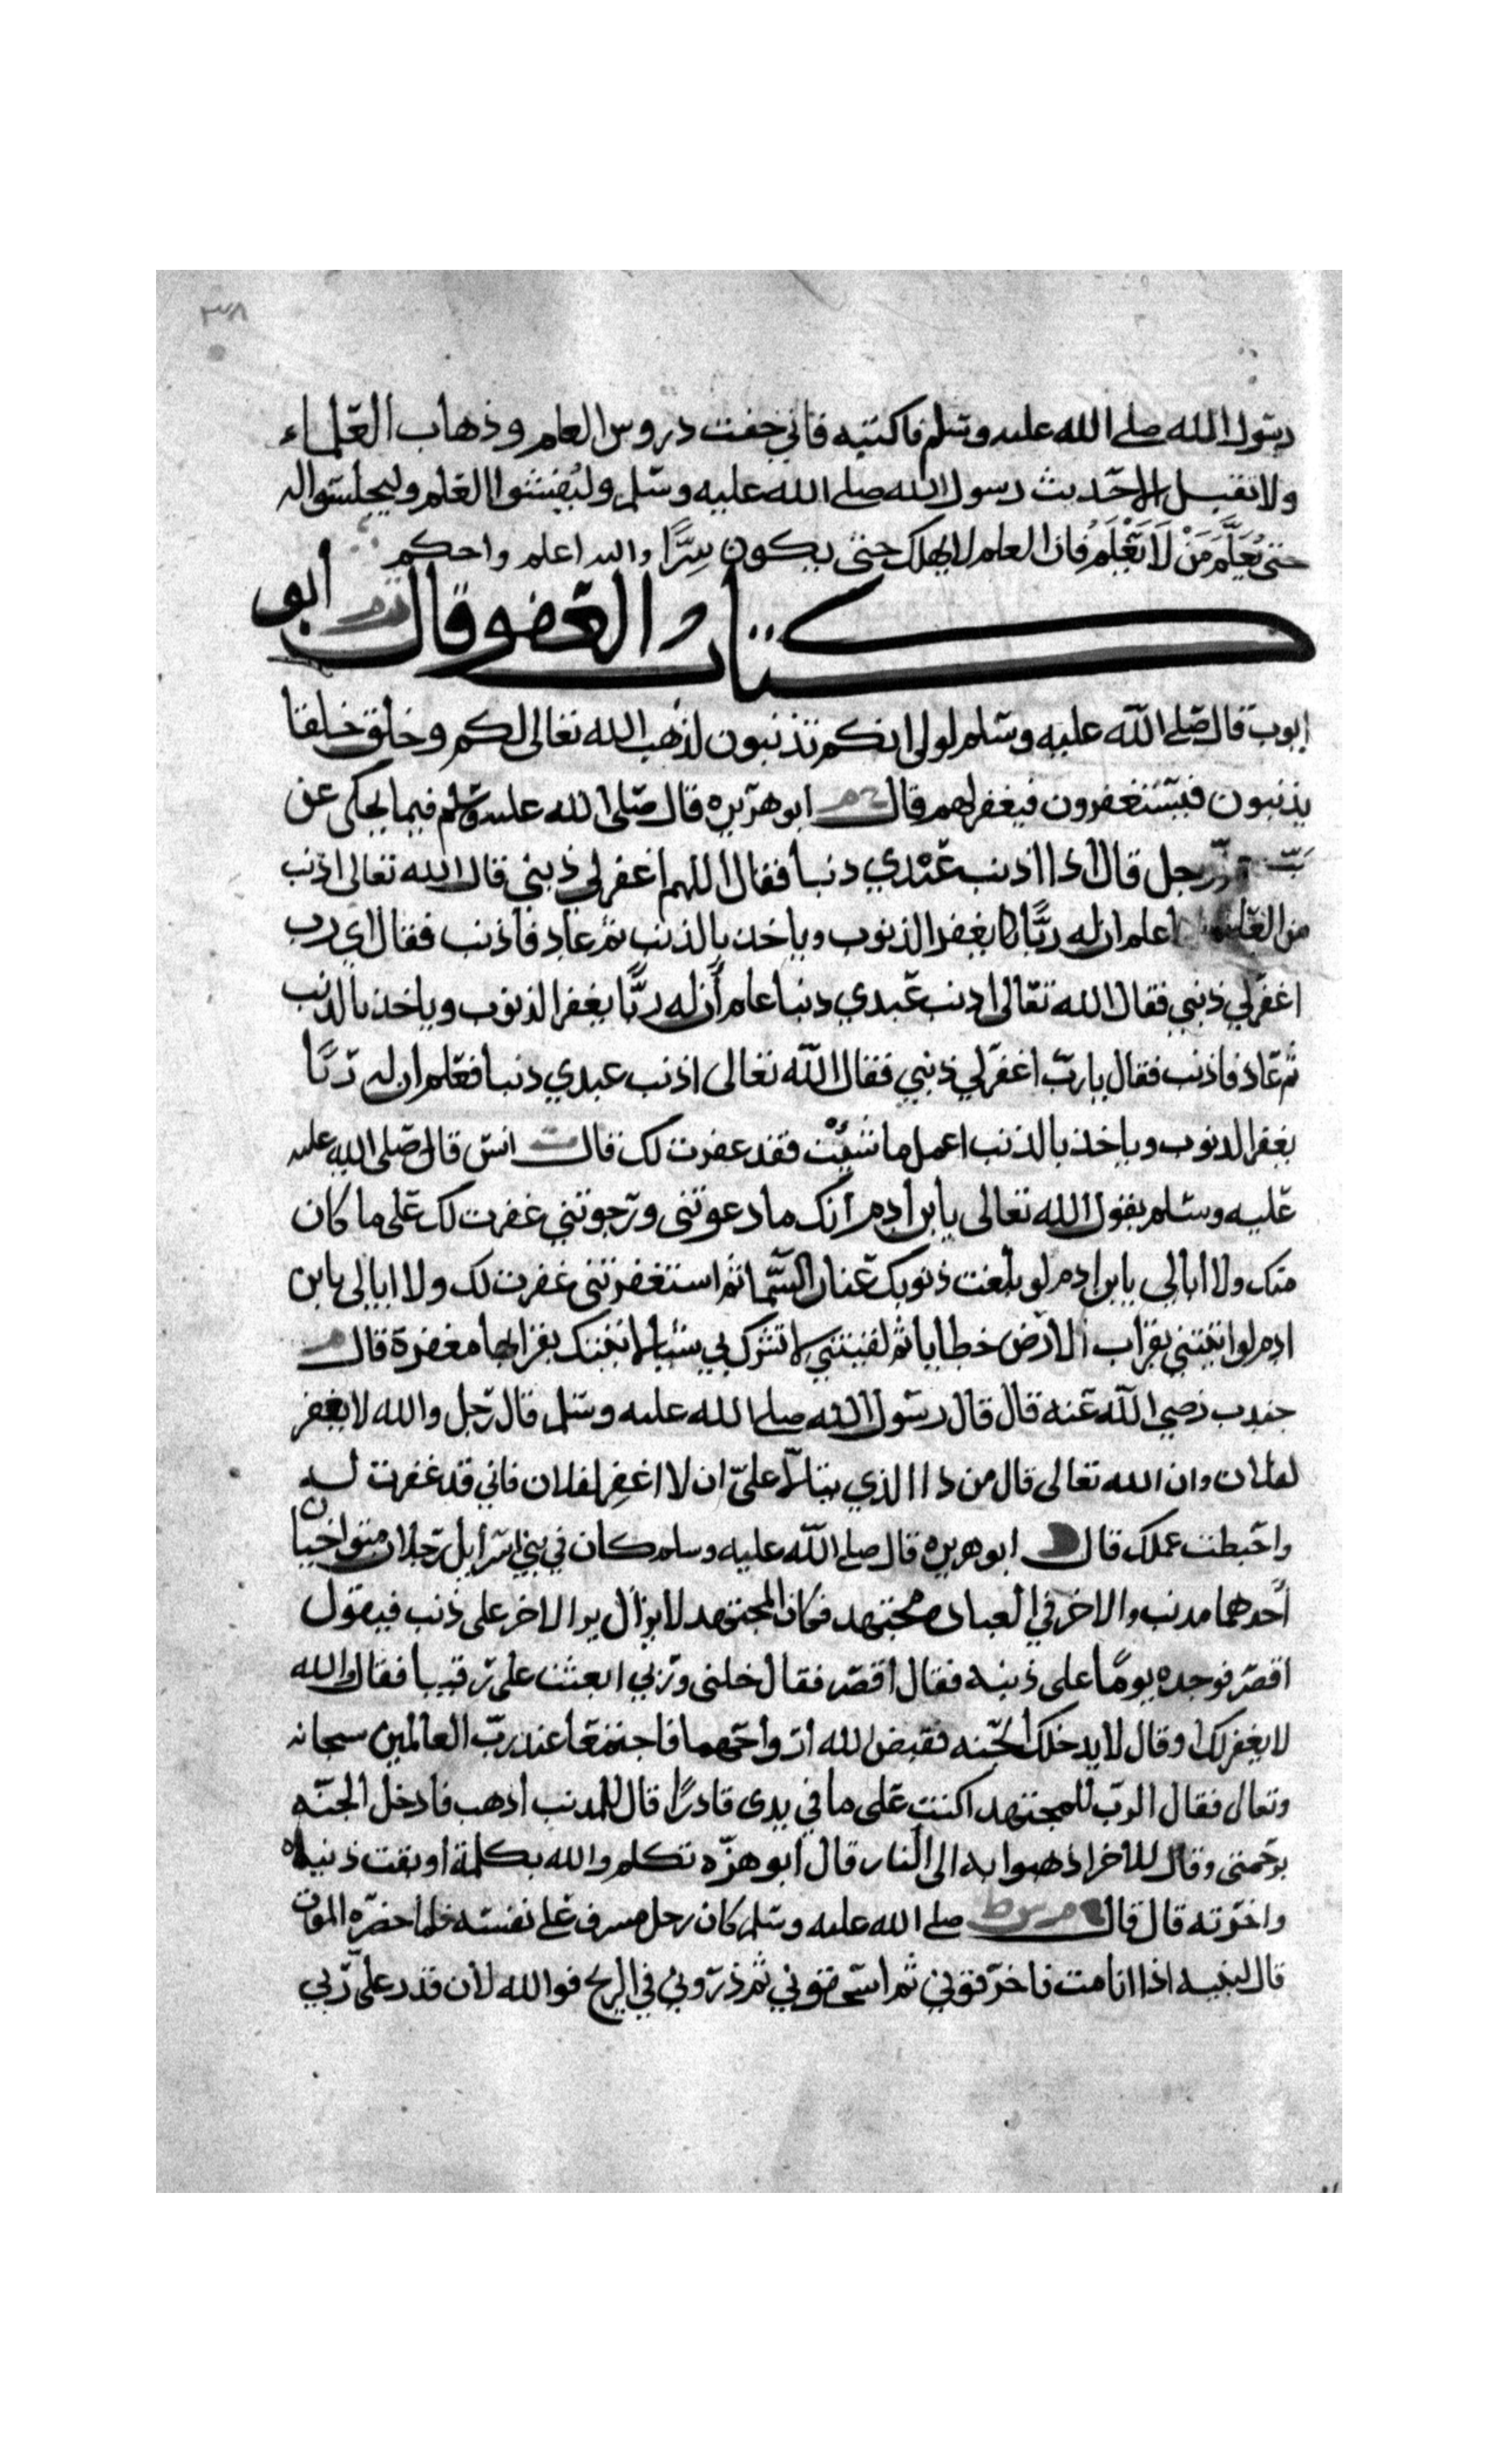 ٣٨
رسول الله صلى الله عليه وسلم فاكتبه فاني خفت دروس العلم وذهاب العلماء
ولا تقبل الا حديث رسول الله صلى الله عليه وسلم وليفشوا العلم وليجلسوا له
حتى يُعَلَّمَ مَنْ لَا يَعْلَمُ فان العلم لا يهلك حتى يكون سِرًّا والله اعلم واحكم
كتاب العفو قال م ابو
ايوب قال صلى الله عليه وسلم لولى انكم تذنبون لذهب الله تعالى لكم وخلق خلقا
يذنبون فيستغفرون فيغفر لهم قال خ م ابو هريره قال صلى الله عليه وسلم فيما يحكى عن
ربّه عزّ وجل قال اذا اذنب عبدي ذنبا فقال اللهم اغفر لي ذنبي قال الله تعالى اذنب
اعلم ان له ربًّا يغفر الذنوب وياخذ بالذنب ثم عاد فاذنب فقال اي رب
اغفر لي ذنبي فقال الله تعالى اذنب عبدي ذنبا علم أن له ربًّا يغفر الذنوب وياخذ بالذنب
ثم عاد فاذنب فقال يا ربّ اغفر لي ذنبي فقال الله تعالى اذنب عبدي ذنبا فعلم ان له ربًّا
يغفر الذنوب وياخذ بالذنب اعمل ما شئت فقد غفرت لك قال ت انس قال صلى الله عليه
عليه وسلم يقول الله تعالى يا بن ادم انك ما دعوتنى ورجوتني غفرت لك على ما كان
منك ولا ابالي يا بن ادم لو بلغت ذنوبك عنان السما ثم استغفرتنى غفرت لك ولا ابالى يا بن
ادم لو اتيتني بقراب الارض خطايا ثم لقيتني لا تشرك بي شئيا لاتيتك بقرابها مغفرة قال م
جندب رضي الله عنه قال قال رسول الله صلى الله عليه وسلم قال رجل والله لا يغفر
لفلان وان الله تعالى قال من ذا الذي يتالّا علىّ ان لا اغفر لفلان فاني قد غفرت له
واحبطت عملك قال د ابو هريره قال صلى الله عليه وسلم كان في بني اسرأيل رجلان متواخيان
أحدهما مدنب والاخر في العباده مجتهد فكان المجتهد لا يزال يرا الاخر على ذنب فيقول
اقصر فوجده يومًا على ذنبه فقال اقصر فقال خلنى وربي ابعثت على رقيبا فقال والله
لا يغفر لك او قال لا يدخلك الجنه فقبض الله ارواحهما فاجتمعا عند رب العالمين سبحانه
وتعالى فقال الرب للمجتهد اكنت على ما في يدى قادرًا قال للمدنب اذهب فادخل الجنه
برحمتى وقال للاخر اذهبوا به الى النار قال ابو هره تكلم والله بكلمة اوبقت دنياه
واخرته قال قال خ م س ط صلى الله عليه وسلم كان رجل مسرف على نفسه فلما حضره الموت
قال لبنيه اذا انا مت فاحرقوني ثم اسحقوني ثم ذروني في الريح فوالله لان قدر علىّ ربي